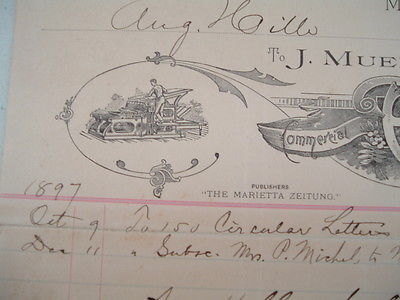 M
Aug. Hille
To J. MUE
Commercial
PUBLISHERS
"THE MARIETTA ZEITUNG."
1897
Oct 9 To 150 Circular Letters
Dec 11 " Subsc. Mrs. P. Michel, to